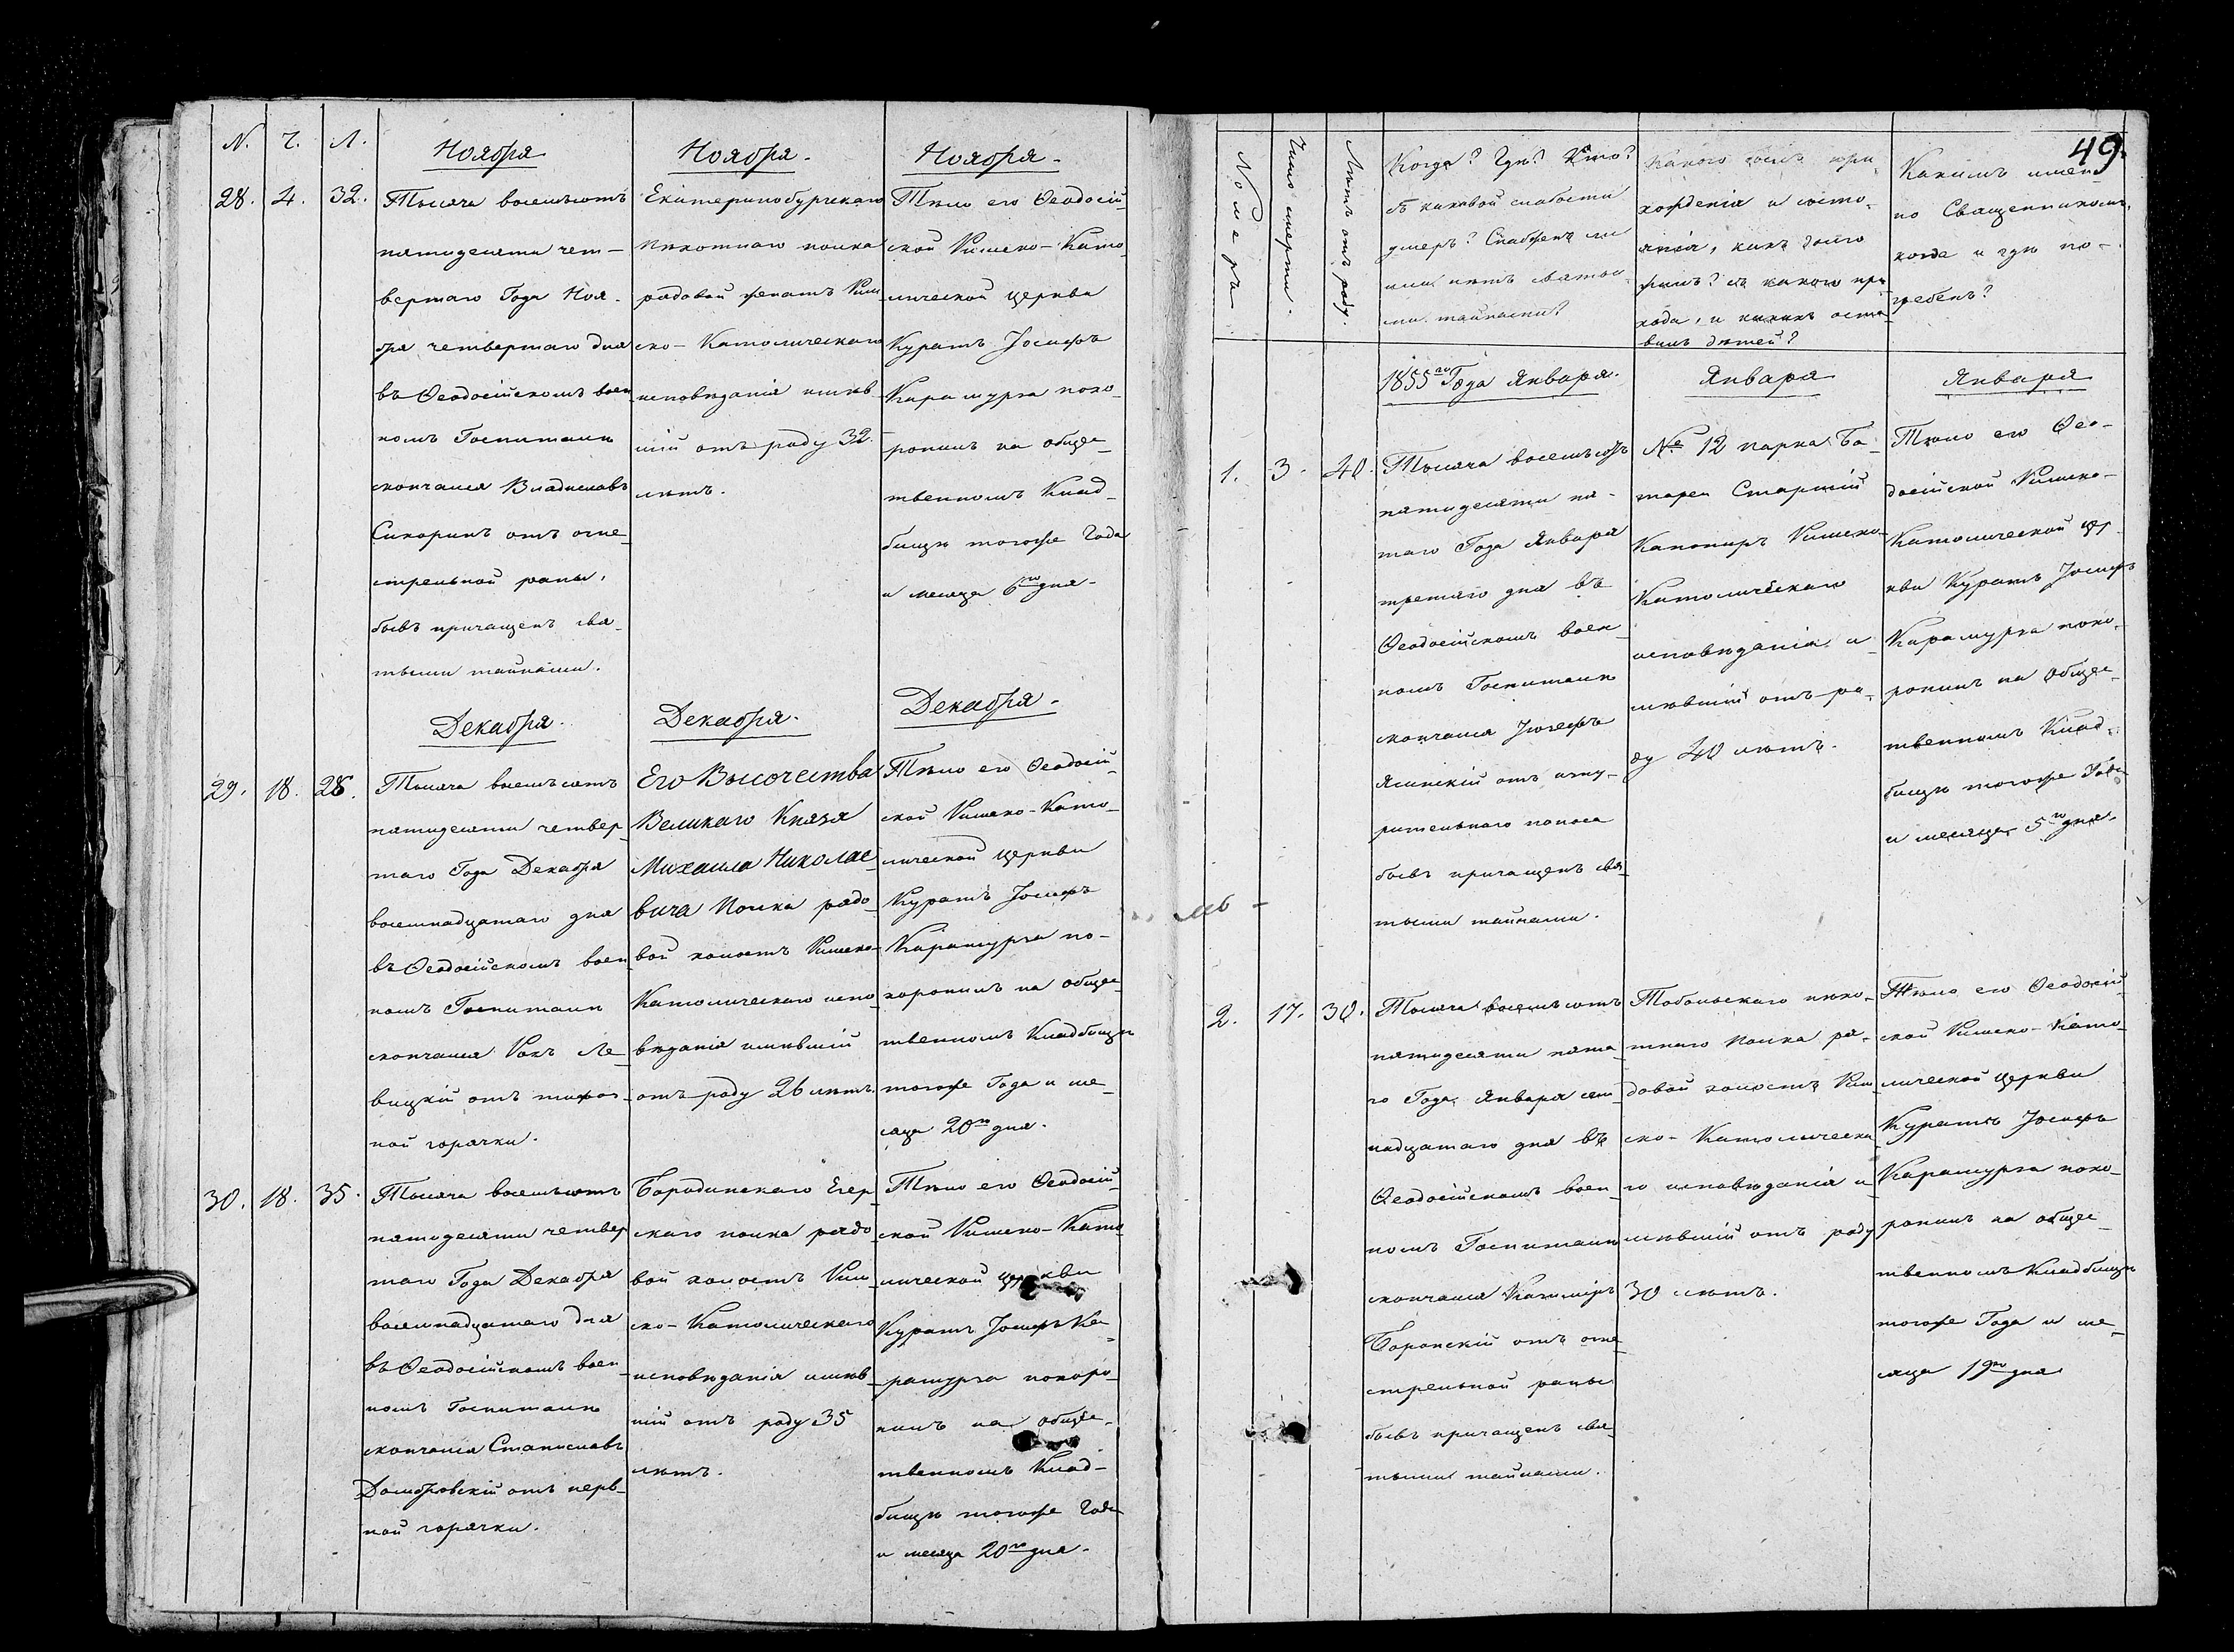 N. Ч. Л.
Ноября
28. 4. 32.
Тысяча восемьсотъ
пятидесяти чет-
вертаго Года Ноя-
бря четвертаго дня
въ Ѳеодосійскомъ воен
номъ Госпиталѣ
скончался Владиславъ
Сикоринъ отъ огне-
стрельной раны,
бывъ причащенъ свя-
тыми тайнами.
Ноября.
Екатеринобургскаго
пѣхотнаго полка
рядовой женатъ Рим
ско-Католическаго
исповѣданія имѣв-
шій отъ роду 32.
лѣтъ.
Ноября.
Тѣло его Ѳеодосій-
ской Римско-Като-
лической церкви
Куратъ Іосифъ
Карамурза похо-
ронилъ на общес-
твенномъ Клад-
бищѣ тогоже Года
и месяца 6го дня.
Декабря.
29. 18. 26.
Тысяча восемьсотъ
пятидесяти четвер-
таго Года Декабря
восемнадцатаго дня
въ Ѳеодосійскомъ воен
номъ Госпиталѣ
скончался Рохъ Ле-
вицкій отъ тифоз-
ной горячки.
Декабря.
Его Высочества
Великаго Князя
Михаила Николае-
вича Полка рядо-
вой холостъ Римско-
Католическаго испо-
вѣданія имѣвшій
отъ роду 26 лѣтъ.
Декабря.
Тѣло его Ѳеодосій-
ской Римско-Като-
лической церкви
Куратъ Іосифъ
Карамурза по-
хоронилъ на общес-
твенномъ Кладбищѣ
тогоже Года и ме-
сяца 20го дня.
30. 18. 35.
Тысяча восемьсотъ
пятидесяти четвер
таго Года Декабря
восемнадцатаго дня
въ Ѳеодосійскомъ воен-
номъ Госпиталѣ
скончался Станиславъ
Домбровскій отъ нерв-
ной горячки.
Бородинскаго Егер
скаго полка рядо-
вой холостъ Рим-
ско-Католическаго
исповѣданія имѣв-
шій отъ роду 35
лѣтъ.
Тѣло его Ѳеодосій-
ской Римско-Като
лической церкви
Куратъ Іосифъ Ка-
рамурза похоро-
нилъ на общес-
твенномъ Клад-
бищѣ тогоже Года
и месяца 20го дня.
49.
Номеръ
Число смерти.
Лѣтъ отъ роду.
Когда? Гдѣ? Кто?
съ каковой слабости
умеръ? Снабженъ ли
или нѣтъ святы-
ми тайнами?
Какого былъ про-
хожденія и состо-
янія, какъ долго
жилъ? съ какого при
хода, и какихъ оста-
вилъ дѣтей?
Какимъ имен-
но Священникомъ,
когда и гдѣ по-
гребенъ?
1855го Года Января.
1. 3. 40.
Тысяча восемьсотъ
пятидесяти пя-
таго Года Января
третяго дня въ
Ѳеодосійскомъ воен-
номъ Госпиталѣ
скончался Іозефъ
Ясинскій отъ изну-
рительнаго поноса
бывъ причащенъ свя-
тыми тайнами.
Января
№ 12 парка Ба-
тареи Старшій
Канониръ Римско-
Католическаго
исповѣданія и-
мѣвшій отъ ро-
ду 40 лѣтъ.
Января
Тѣло его Ѳео-
досійской Римско-
Католической Цер-
кви Куратъ Іосифъ
Карамурза похо-
ронилъ на общес-
твенномъ Клад-
бищѣ тогоже Года
и месяца 5го дня.
2. 17. 30.
Тысяча восемьсотъ
пятидесяти пята-
го Года Января сем-
надцатаго дня въ
Ѳеодосійскомъ воен-
номъ Госпиталѣ
скончался Казимиръ
Боронскій отъ огне-
стрельной раны
бывъ причащенъ свя-
тыми тайнами.
Тобольскаго пѣхо-
тнаго Полка ря-
довой холостъ Рим
ско-Католическа
го исповѣданія и-
мѣвшій отъ роду
30 лѣтъ.
Тѣло его Ѳеодосій-
ской Римско-Като-
лической Церкви
Куратъ Іосифъ
Карамурза похо-
ронилъ на общес-
твенномъ Кладбищѣ
тогоже Года и ме-
сяца 19го дня